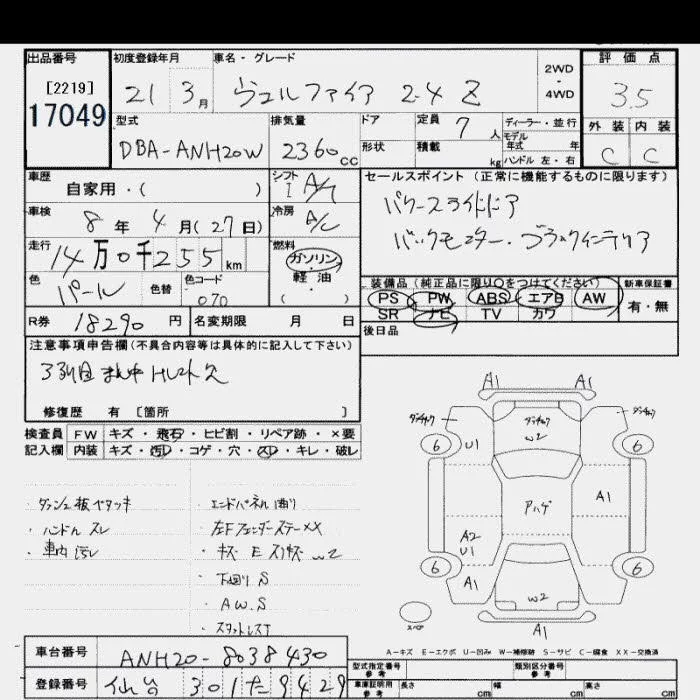 出品番号 初度登録年月 車名・グレード 2WD・4WD 評価点
[2219]
17049
21 3月 ヴェルファイア 2.4 Z 3.5
型式 排気量 ドア 定員 7人 ディーラー・並行 外装 内装
DBA-ANH20W 2360cc 形状 積載 kg モデル年式 年 ハンドル 左・右 C C
車歴 シフト セールスポイント (正常に機能するものに限ります)
自家用・( ) I A/T パワースライドドア
車検 8年 4月(27日) 冷房 A/C バックモニター・ブラックインテリア
走行 14万0千255km 燃料 ガソリン・軽油 ( )
色 パール 色替 色コード 070
装備品 (純正品に限り○をつけてください) 新車保証書
PS PW ABS エアB AW 有・無
SR ナビ TV カワ
R券 18290円 名変期限 月 日 後日品
注意事項申告欄 (不具合内容等は具体的に記入して下さい)
3列目 まん中 ヘッドレスト欠
修復歴 有 [箇所 ]
検査員 FW キズ・飛石・ヒビ割・リペア跡・×要
記入欄 内装 キズ・汚レ・コゲ・穴・スレ・キレ・破レ
A1 A1
W2
6 U1 6
A1
アハゲ
A2
U1
6 6
A1
W2
A1
スペア
・ダッシュ板ベタツキ
・ハンドルスレ
・車内汚レ
・エンドパネル曲り
・左Fフェンダーステー××
・キズ E スリキズ W2
・下廻りS
・A.W.S
・スタットレスT
A-キズ E-エクボ U-凹み W-補修跡 S-サビ C-腐食 XX-交換済
車台番号 ANH20-8038430
登録番号 仙台 301 た 9429
型式指定番号 参考 類別区分番号 参考
車庫証明用 参考 長さ cm 幅 cm 高さ cm